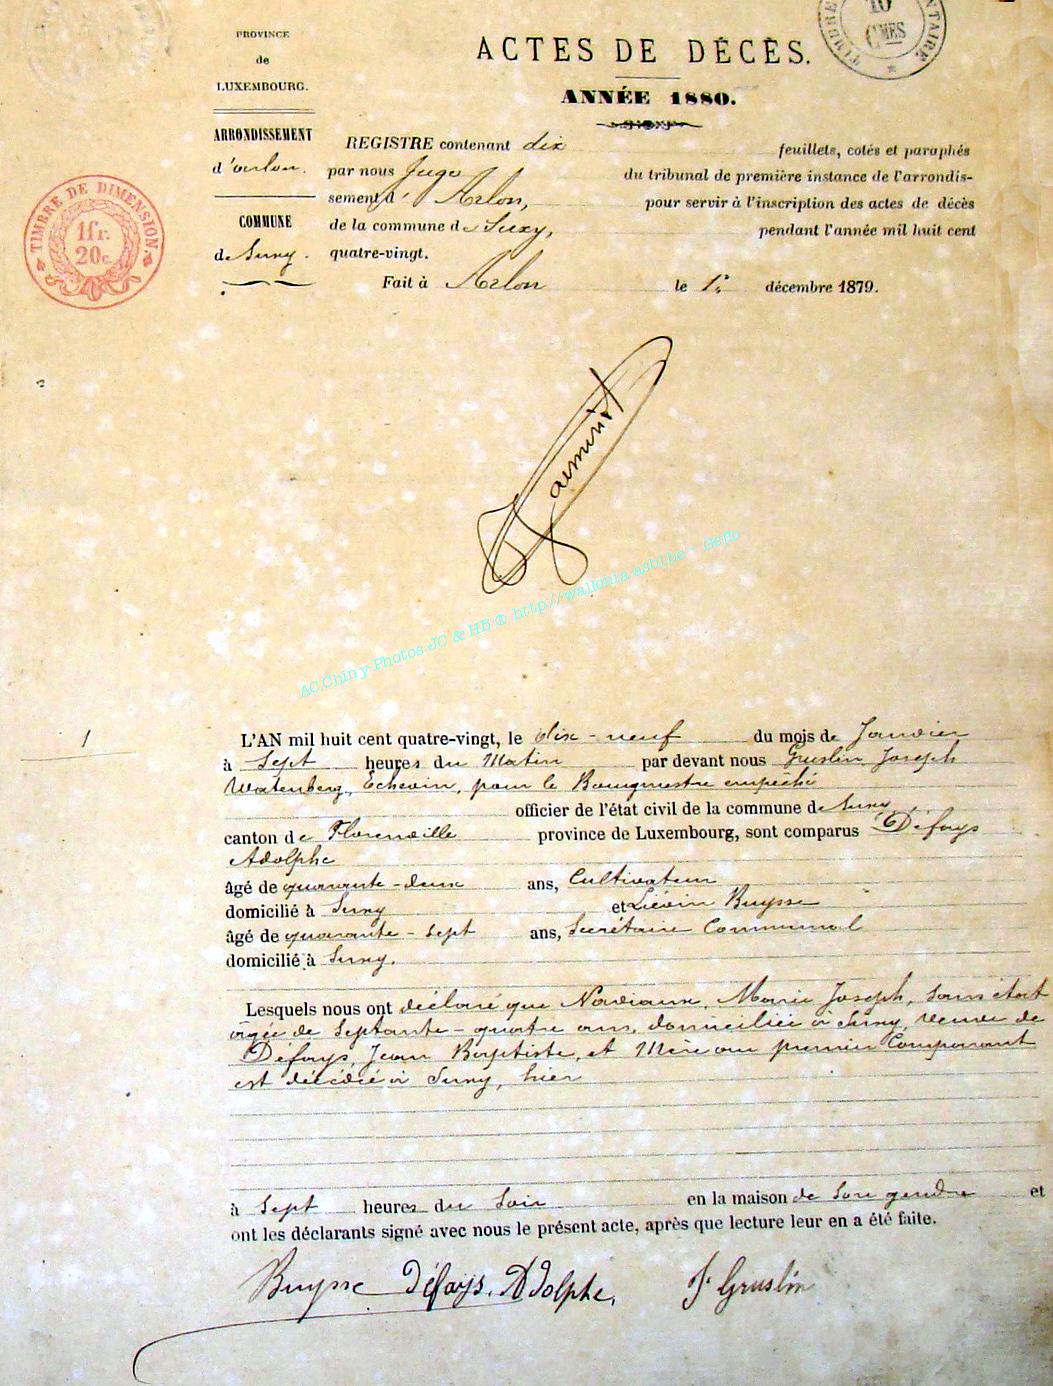 PROVINCE
de
LUXEMBOURG.
ARRONDISSEMENT
d'arlon.
COMMUNE
de Suxy.
TIMBRE DE DIMENSION.
1fr.
20c.
10
CMES
ACTES DE DÉCÈS.
ANNÉE 1880.
REGISTRE contenant dix feuillets, cotés et paraphés
par nous Juge du tribunal de première instance de l'arrondis-
sement d' Arlon, pour servir à l'inscription des actes de décès
de la commune de Suxy, pendant l'année mil huit cent
quatre-vingt.
Fait à Arlon le 1r décembre 1879.
AC Chiny Photos JC & HB ® http://wallonia.asbl.be - Gefo
1
L'AN mil huit cent quatre-vingt, le dix-neuf du mois de Janvier
à Sept heures du Matin par devant nous Gruslin, Joseph
Watenberg, Echevin, pour le Bourgmestre empêché
officier de l'état civil de la commune de Suxy
canton de Florenville province de Luxembourg, sont comparus Défays
Adolphe
âgé de quarante-deux ans, Cultivateur
domicilié à Suxy et Liévin Buysse
âgé de quarante-sept ans, Secrétaire Communal
domicilié à Suxy.
Lesquels nous ont déclaré que Naviaux, Marie Joseph, sans état
âgée de septante-quatre ans, domiciliée à Suxy, veuve de
Défays, Jean Baptiste, et Mère au premier Comparant
est décédée à Suxy, hier
à Sept heures du Soir en la maison de Son gendre et
ont les déclarants signé avec nous le présent acte, après que lecture leur en a été faite.
Buysse Défays. Adolphe. J. Gruslin